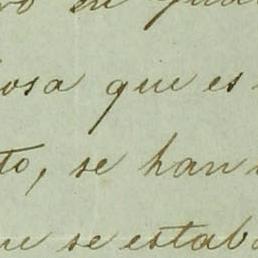 en
osa que es
to, se han
se estab